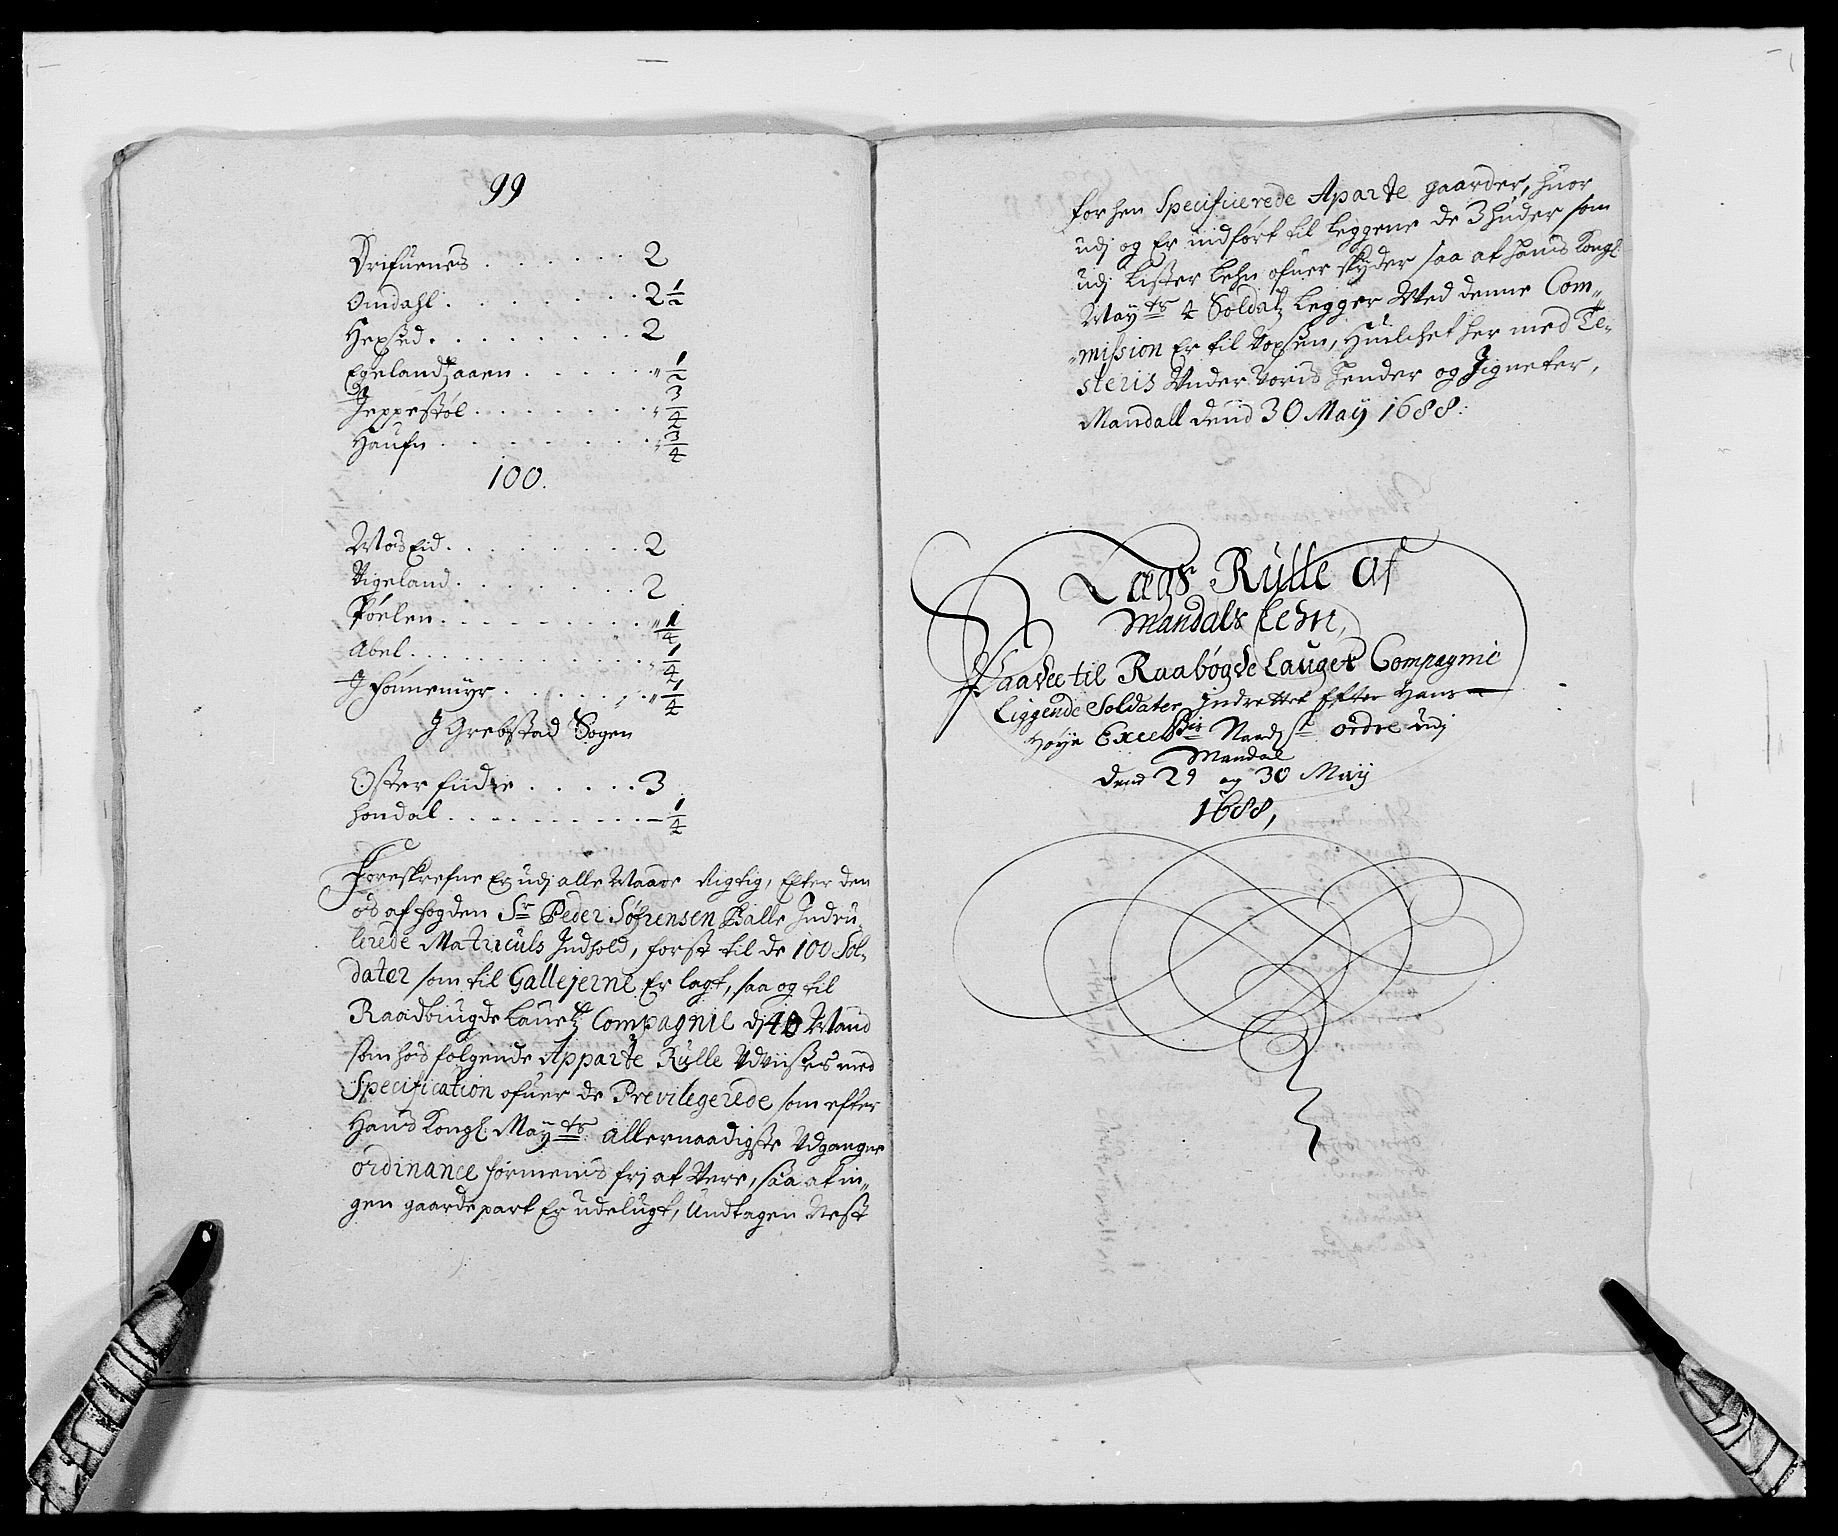 99
Drifuenes . . . . . . . 2
Omdahl . . . . . . . 2 1/2
Hexsed . . . . . . . . 2
Egelandtzaaen . . . . . . " 1/2
Jeppestøl . . . . . . . . " 3/4
Haufn . . . . . . . . . " 3/4
100.
Mosseid . . . . . . . . 2
Vigeland . . . . . . . 2
Røelen . . . . . . . . " 1/4
Abel . . . . . . . . . . " 1/4
J fonnemyr . . . . . . " 1/4
J Grebstad Sogen
Øster fudie . . . . . 3
hondal . . . . . . . . . – 1/4
Foreskrefne Er udj alle Maade Rigtig, Efter den
os af fogden Sr Peder Søfrensen Balle Indru-
lerede Matriculs Indhold, først til de 100 Sol-
dater som til Gallejerne Er lagt, saa og til
Raadbiugde Lauetz Compagnie dj 40 Mand
som hos følgende Apparte Rulle Udviises med
Specification ofuer de Previlegerede som efter
Hans Kongl: Mayts: allernaadigste Udgangne
ordinance formenis frj at Vere, saa at in-
gen gaardepart Er udelugt, Undtagen Nest
forhen Specificerede Aparte gaarder, huor
udj og Er indført til Leggene de 3 huder som
udj Lister Lehn ofuer skyder saa at hans Kongl:
Mayts 4 Soldatz Legger Med denne Com-
mission Er til Voxsen, Huilchet her med Te-
steris Under Voris hender og Signeter,
Mandall dend 30 May 1688:
Legs Rulle af
Mandals Lehn,
Paa dee til Raabøgde Lauget Compagnie
Liggende Soldater Indrettet Efter Hans
Høye Excell: Naads ordre udj
Mandal
dend 29 og 30 May
1688,